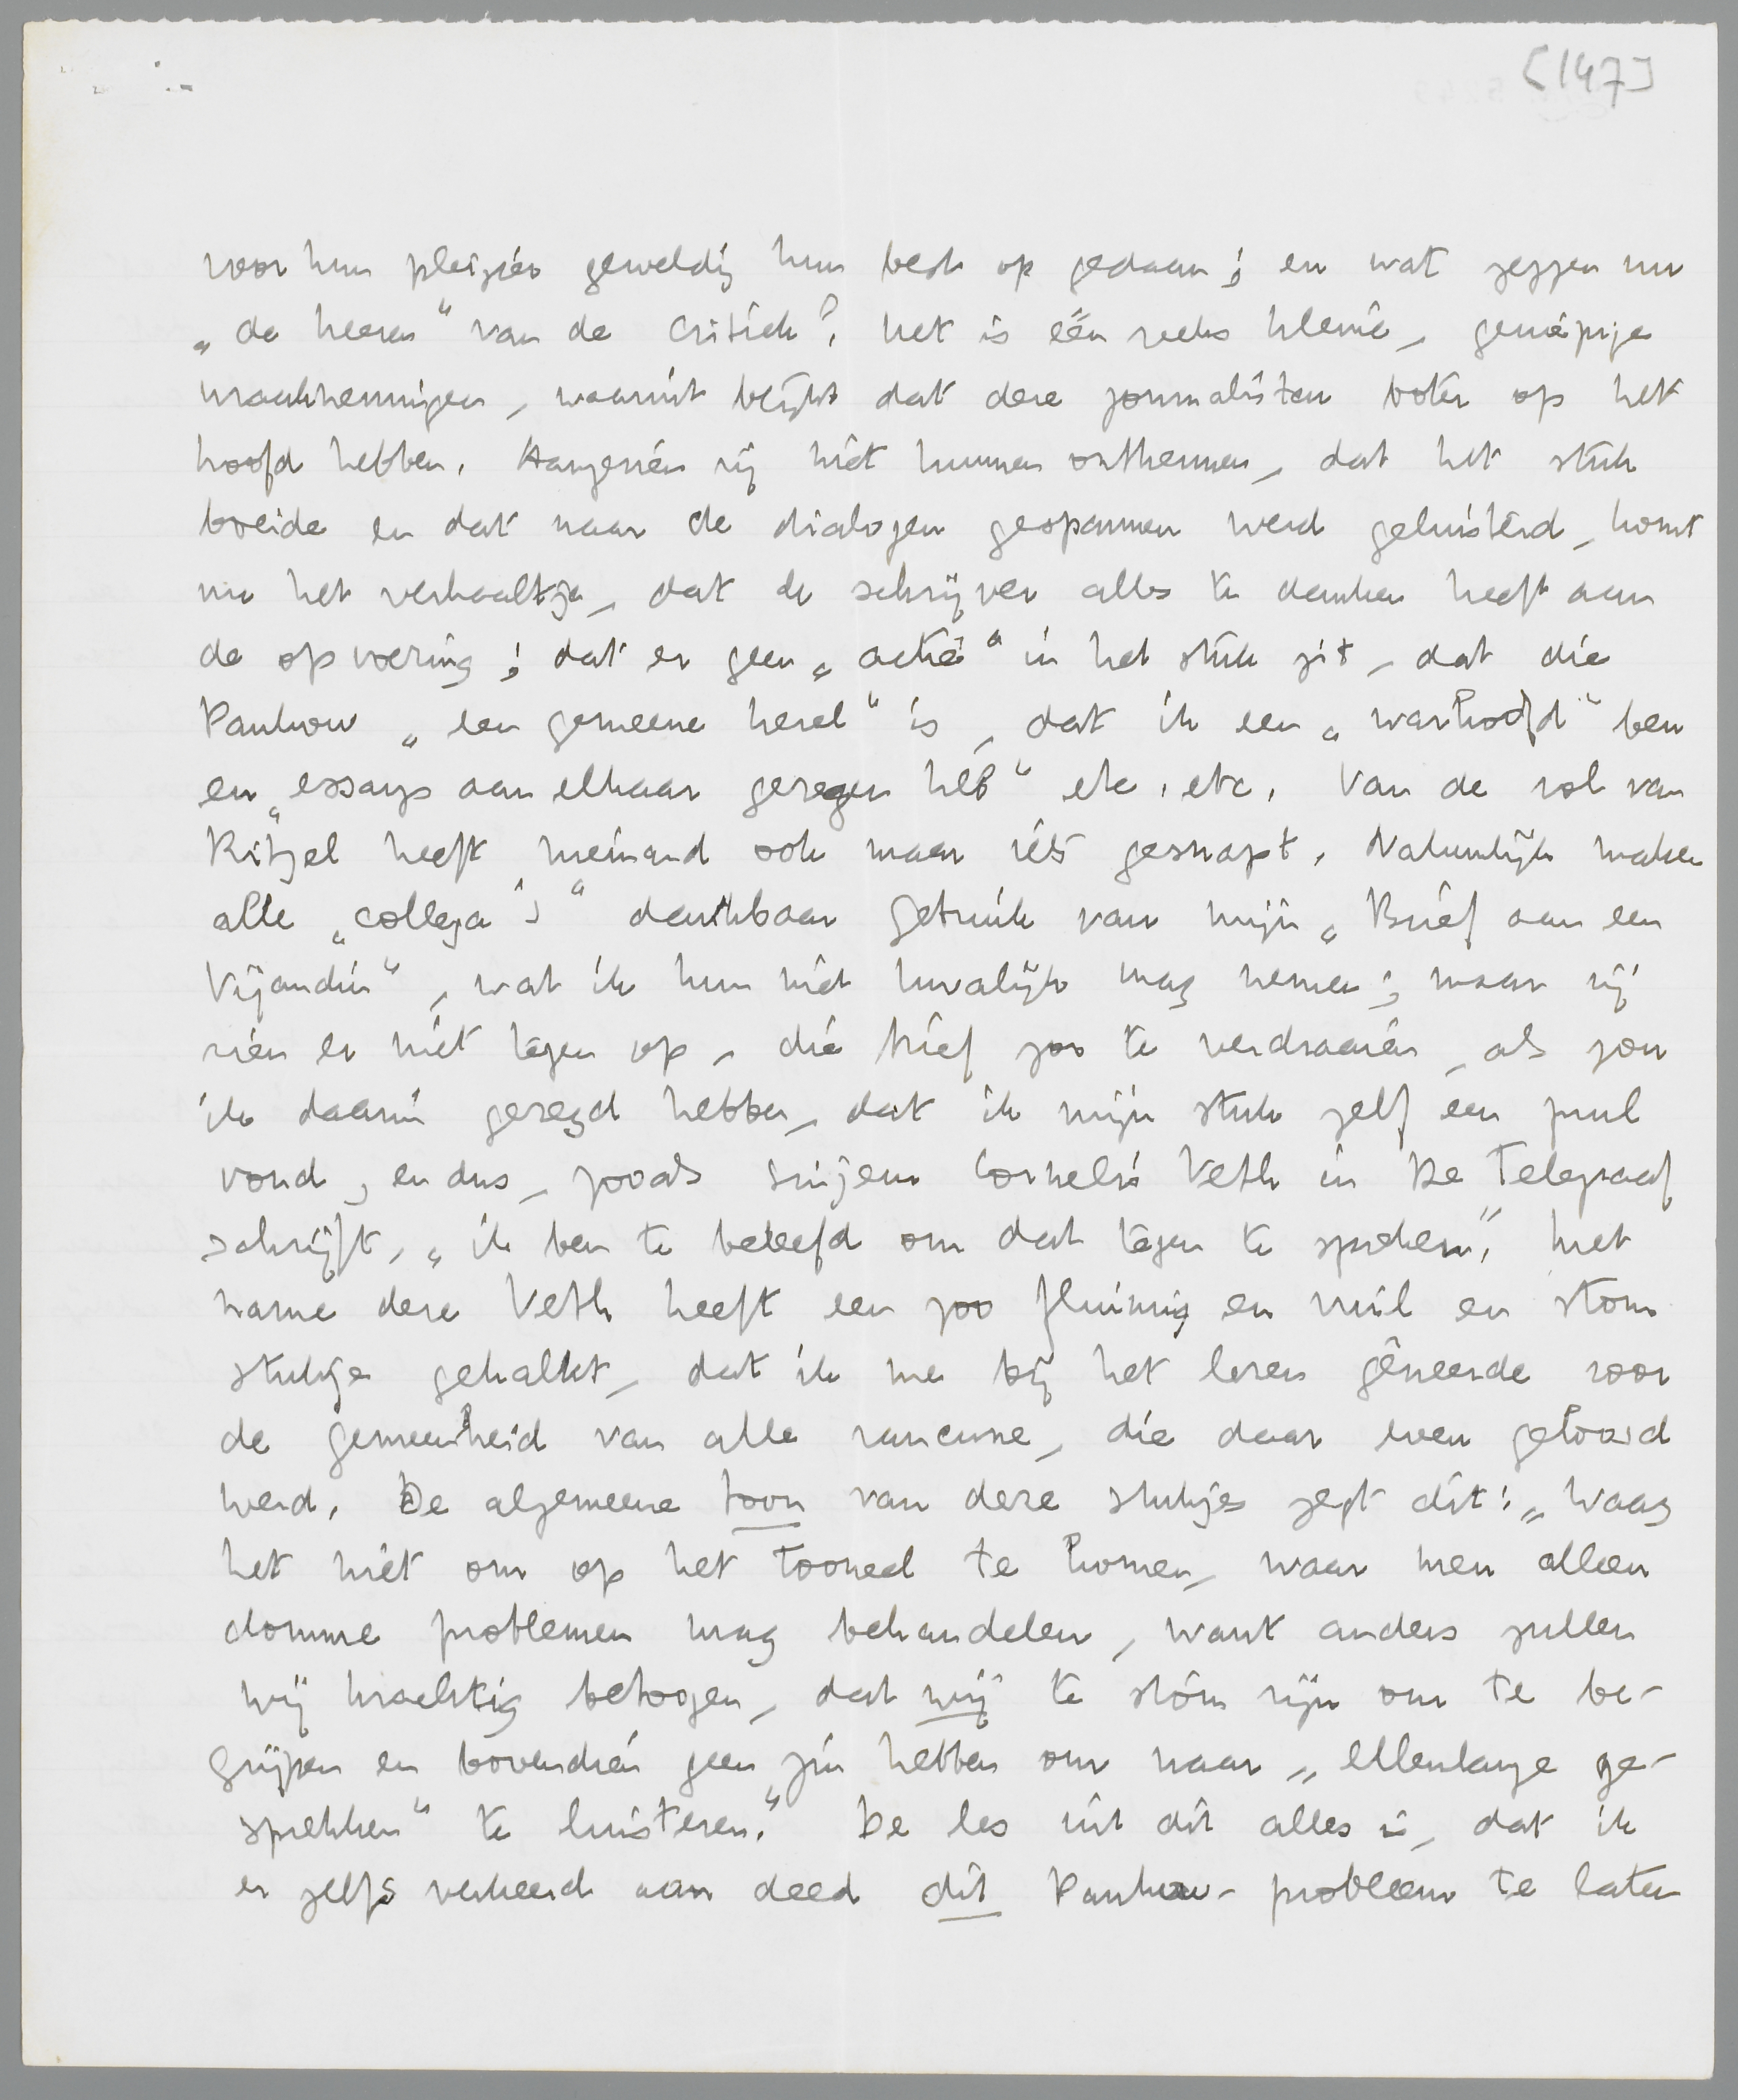 [147]
voor hun pleizier geweldig hun best op gedaan; en wat zeggen nu
„de heeren" van de critiek? het is één reeks kleine, geniepige
wraaknemingen, waaruit blijkt dat deze journalisten boter op het
hoofd hebben. Aangezien zij niet kunnen ontkennen, dat het stuk
boeide en dat naar de dialogen gespannen werd geluisterd, komt
nu het verhaaltje, dat de schrijver alles te danken heeft aan
de opvoering; dat er geen „actie" in het stuk zit, dat die
Pankouw „een gemeene kerel" is, dat ik een „warhoofd" ben
en „essays aan elkaar geregen heb" etc. etc. Van de rol van
Ritzel heeft niemand ook maar iets gesnapt. Natuurlijk maken
alle „collega's" dankbaar gebruik van mijn „Brief aan een
Vijandin", wat ik hun niet kwalijk mag nemen; maar zij
zien er niet tegen op, die brief zoo te verdraaien, als zou
ik daarin gezegd hebben, dat ik mijn stuk zelf een prul
vond, en dus, zooals sinjeur Cornelis Veth in De Telegraaf
schrijft, „ik ben te beleefd om dat tegen te spreken". Met
name deze Veth heeft een zoo fluimig en vuil en stom
stukje gekalkt, dat ik me bij het lezen gêneerde voor
de gemeenheid van alle rancune, die daar even geloosd
werd. De algemeene toon van deze stukjes zegt dit: „Waag
het niet om op het tooneel te komen, waar men alleen
domme problemen mag behandelen, want anders zullen
wij krachtig betoogen, dat wij te stóm zijn om te be-
grijpen en bovendien geen zin hebben om naar „ellenlange ge-
sprekken" te luisteren." De les uit dit alles is, dat ik
er zelfs verkeerd aan deed dit Pankouw-probleem te laten